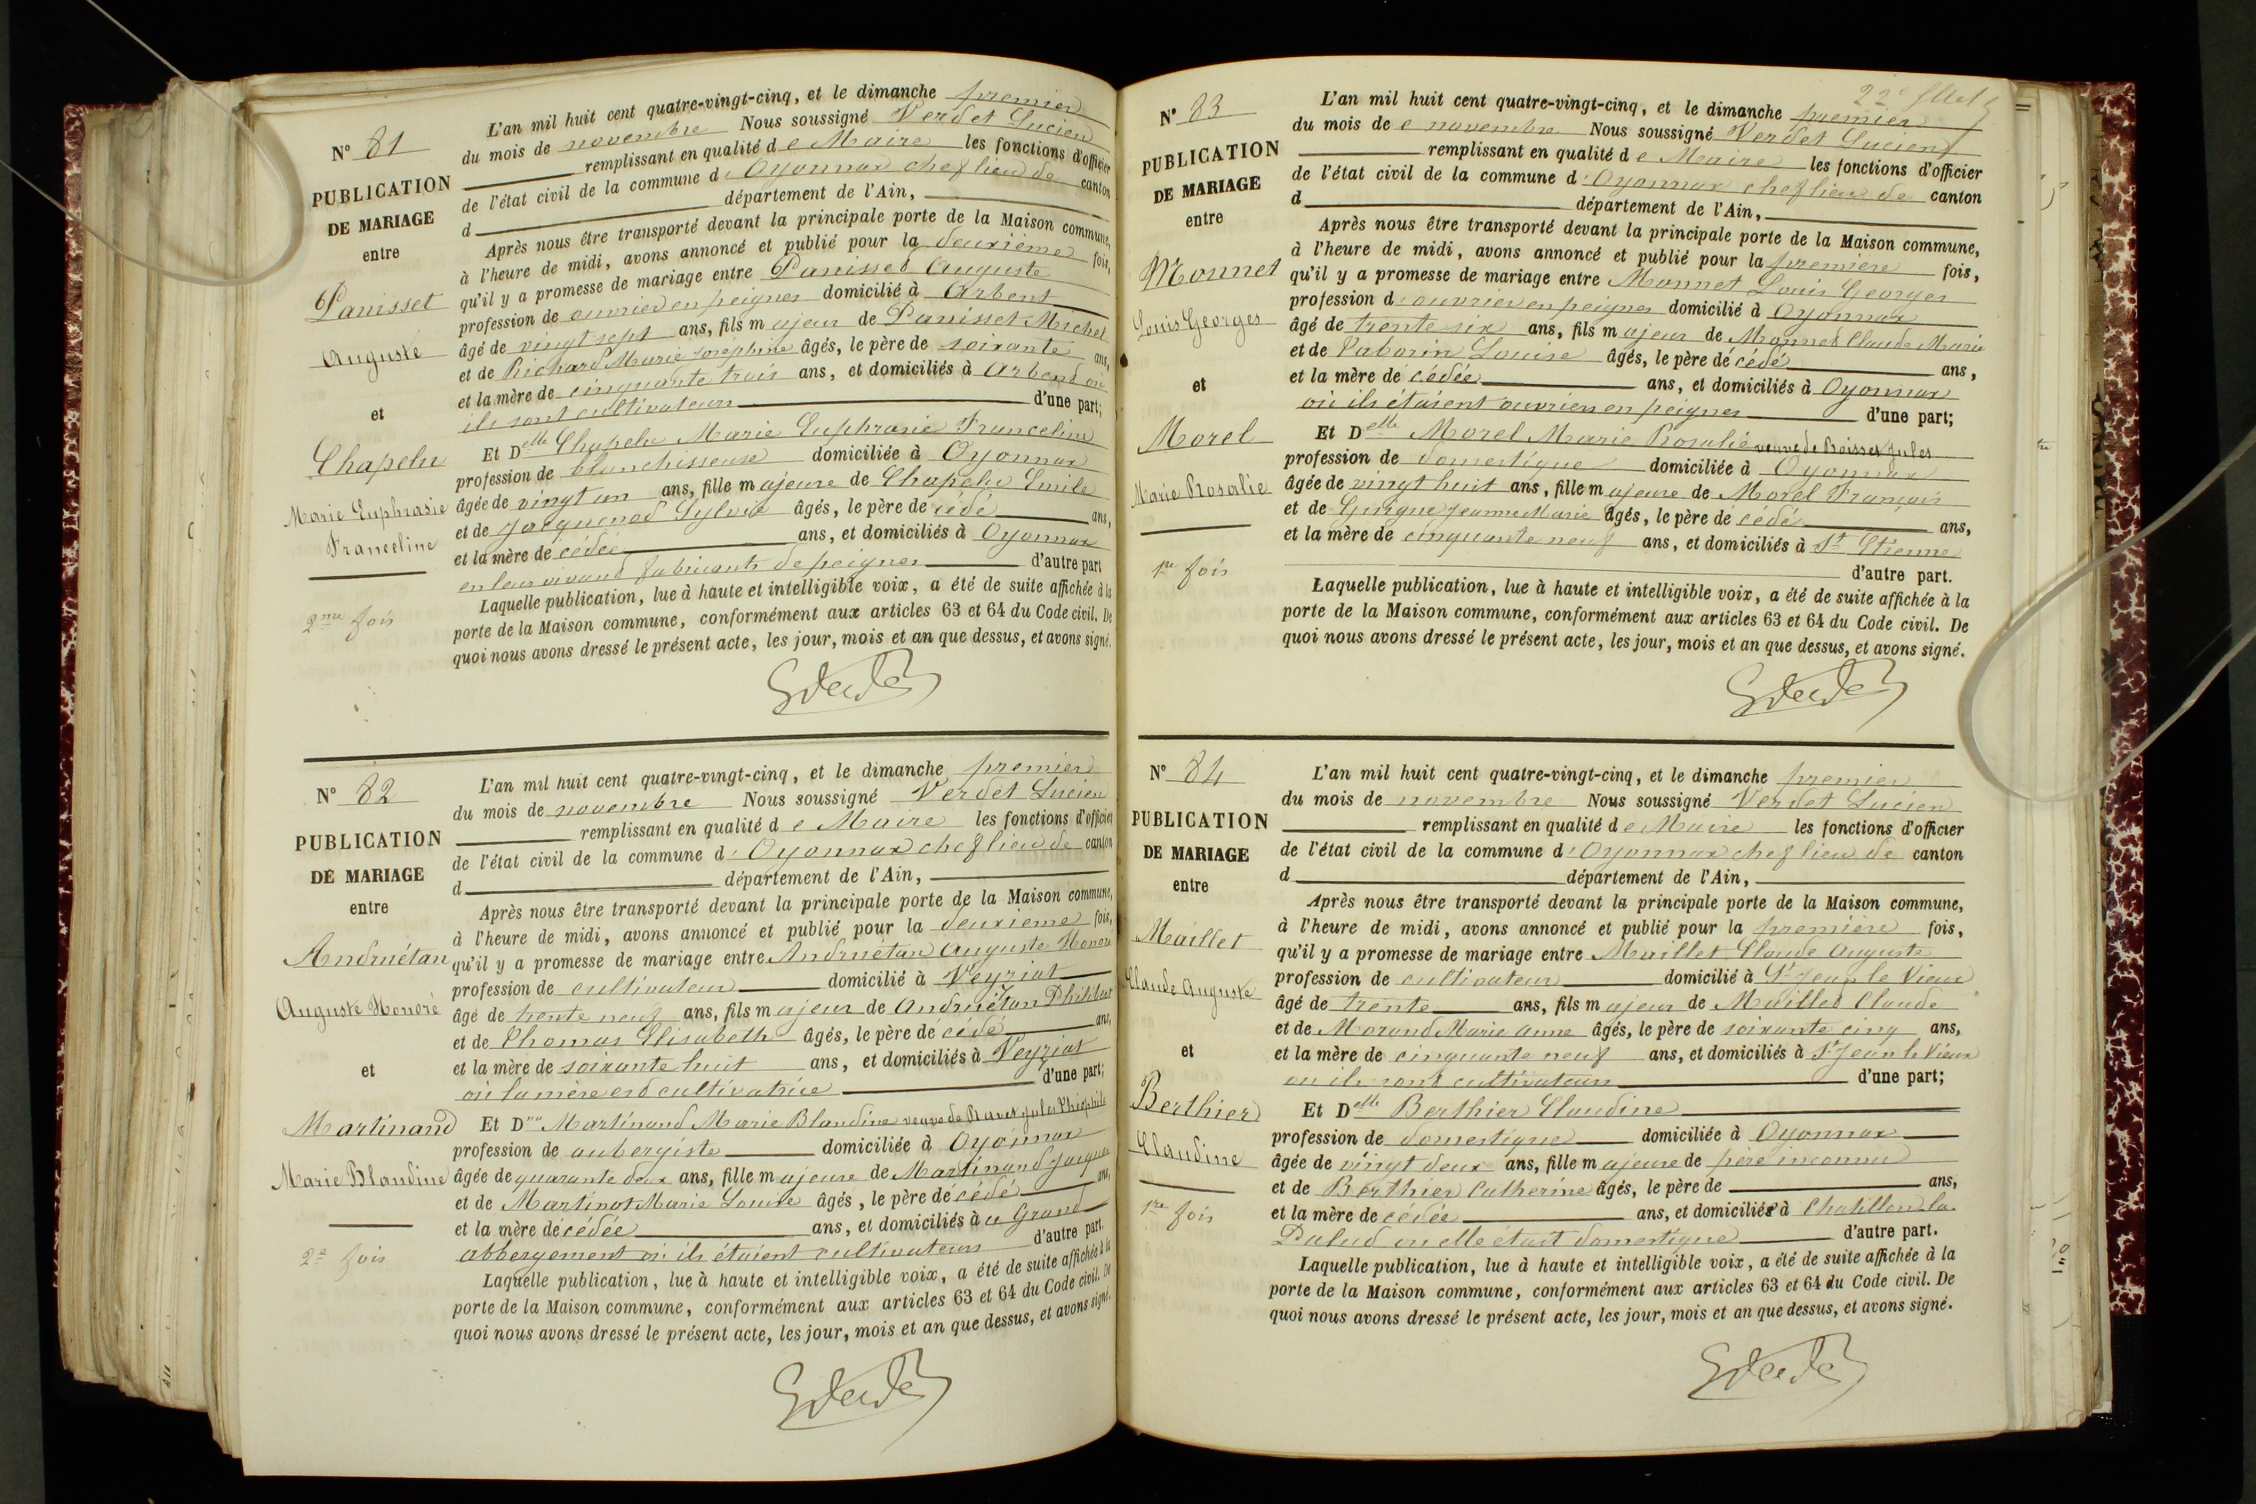 N° 81
PUBLICATION
DE MARIAGE
entre
Panisset
Auguste
et
Chapelu
Marie Euphrasie
Franceline
2me fois
L'an mil huit cent quatre-vingt-cinq, et le dimanche premier
du mois de novembre Nous soussigné Verdet Lucien
remplissant en qualité de Maire les fonctions d'officier
de l'état civil de la commune d'Oyonnax chef lieu de canton
d département de l'Ain,
Après nous être transporté devant la principale porte de la Maison commune,
à l'heure de midi, avons annoncé et publié pour la deuxième fois,
qu'il y a promesse de mariage entre Panisset Auguste
profession de ouvrier en peignes domicilié à Arbent
âgé de vingt sept ans, fils majeur de Panisset Michel
et de Richard Marie Joséphine âgés, le père de soixante ans,
et la mère de cinquante trois ans, et domiciliés à Arbent où
ils sont cultivateurs d'une part;
Et Delle Chapelu Marie Euphrasie Franceline
profession de blanchisseuse domiciliée à Oyonnax
âgée de vingt un ans, fille majeure de Chapelu Emile
et de Jacquenod Sylvie âgés, le père décédé ans,
et la mère décédée ans, et domiciliés à Oyonnax
en leur vivant fabricants de peignes d'autre part
Laquelle publication, lue à haute et intelligible voix, a été de suite affichée à la
porte de la Maison commune, conformément aux articles 63 et 64 du Code civil. De
quoi nous avons dressé le présent acte, les jour, mois et an que dessus, et avons signé.
N° 82
PUBLICATION
DE MARIAGE
entre
Andruétan
Auguste Honoré
et
Martinand
Marie Blandine
2e fois
L'an mil huit cent quatre-vingt-cinq, et le dimanche premier
du mois de novembre Nous soussigné Verdet Lucien
remplissant en qualité de Maire les fonctions d'officier
de l'état civil de la commune d'Oyonnax chef lieu de canton
d département de l'Ain,
Après nous être transporté devant la principale porte de la Maison commune,
à l'heure de midi, avons annoncé et publié pour la deuxième fois,
qu'il y a promesse de mariage entre Andruétan Auguste Honoré
profession de cultivateur domicilié à Veyziat
âgé de trente neuf ans, fils majeur de Andruétan Philibert
et de Thomas Elisabeth âgés, le père décédé ans,
et la mère de soixante huit ans, et domiciliés à Veyziat
où la mère est cultivatrice d'une part;
Et Dme Martinand Marie Blandine veuve de Ravet Jules Théophile
profession de aubergiste domiciliée à Oyonnax
âgée de quarante deux ans, fille majeure de Martinand Jacques
et de Martinod Marie Louise âgés, le père décédé ans,
et la mère décédée ans, et domiciliés à u Grand
abbergement où ils étaient cultivateurs d'autre part.
Laquelle publication, lue à haute et intelligible voix, a été de suite affichée à la
porte de la Maison commune, conformément aux articles 63 et 64 du Code civil. De
quoi nous avons dressé le présent acte, les jour, mois et an que dessus, et avons signé.
22e
N° 83
PUBLICATION
DE MARIAGE
entre
Monnet
Louis Georges
et
Morel
Marie Rosalie
1re fois
L'an mil huit cent quatre-vingt-cinq, et le dimanche premier
du mois de e novembre Nous soussigné Verdet Lucien
remplissant en qualité de Maire les fonctions d'officier
de l'état civil de la commune d'Oyonnax chef lieu de canton
d département de l'Ain,
Après nous être transporté devant la principale porte de la Maison commune,
à l'heure de midi, avons annoncé et publié pour la première fois,
qu'il y a promesse de mariage entre Monnet Louis Georges
profession d'ouvrier en peignes domicilié à Oyonnax
âgé de trente six ans, fils majeur de Monnet Claude Marie
et de Vaborin Louise âgés, le père décédé ans,
et la mère décédée ans, et domiciliés à Oyonnax
où ils étaient ouvriers en peignes d'une part;
Et Delle Morel Marie Rosalie veuve de Boisset Jules
profession de domestique domiciliée à Oyonnax
âgée de vingt huit ans, fille majeure de Morel François
et de Guigue Jeanne Marie âgés, le père décédé ans,
et la mère de cinquante neuf ans, et domiciliés à St Etienne
d'autre part.
Laquelle publication, lue à haute et intelligible voix, a été de suite affichée à la
porte de la Maison commune, conformément aux articles 63 et 64 du Code civil. De
quoi nous avons dressé le présent acte, les jour, mois et an que dessus, et avons signé.
N° 84
PUBLICATION
DE MARIAGE
entre
Maillet
Claude Auguste
et
Berthier
Claudine
1re fois
L'an mil huit cent quatre-vingt-cinq, et le dimanche premier
du mois de novembre Nous soussigné Verdet Lucien
remplissant en qualité de Maire les fonctions d'officier
de l'état civil de la commune d'Oyonnax chef lieu de canton
d département de l'Ain,
Après nous être transporté devant la principale porte de la Maison commune,
à l'heure de midi, avons annoncé et publié pour la première fois,
qu'il y a promesse de mariage entre Maillet Claude Auguste
profession de cultivateur domicilié à St Jean le Vieux
âgé de trente ans, fils majeur de Maillet Claude
et de Morand Marie Anne âgés, le père de soixante cinq ans,
et la mère de cinquante neuf ans, et domiciliés à St Jean le Vieux
où ils sont cultivateurs d'une part;
Et Delle Berthier Claudine
profession de domestique domiciliée à Oyonnax
âgée de vingt deux ans, fille majeure de père inconnu
et de Berthier Catherine âgés, le père de ans,
et la mère décédée ans, et domiciliés à Chatillon la
Palud où elle était domestique d'autre part.
Laquelle publication, lue à haute et intelligible voix, a été de suite affichée à la
porte de la Maison commune, conformément aux articles 63 et 64 du Code civil. De
quoi nous avons dressé le présent acte, les jour, mois et an que dessus, et avons signé.